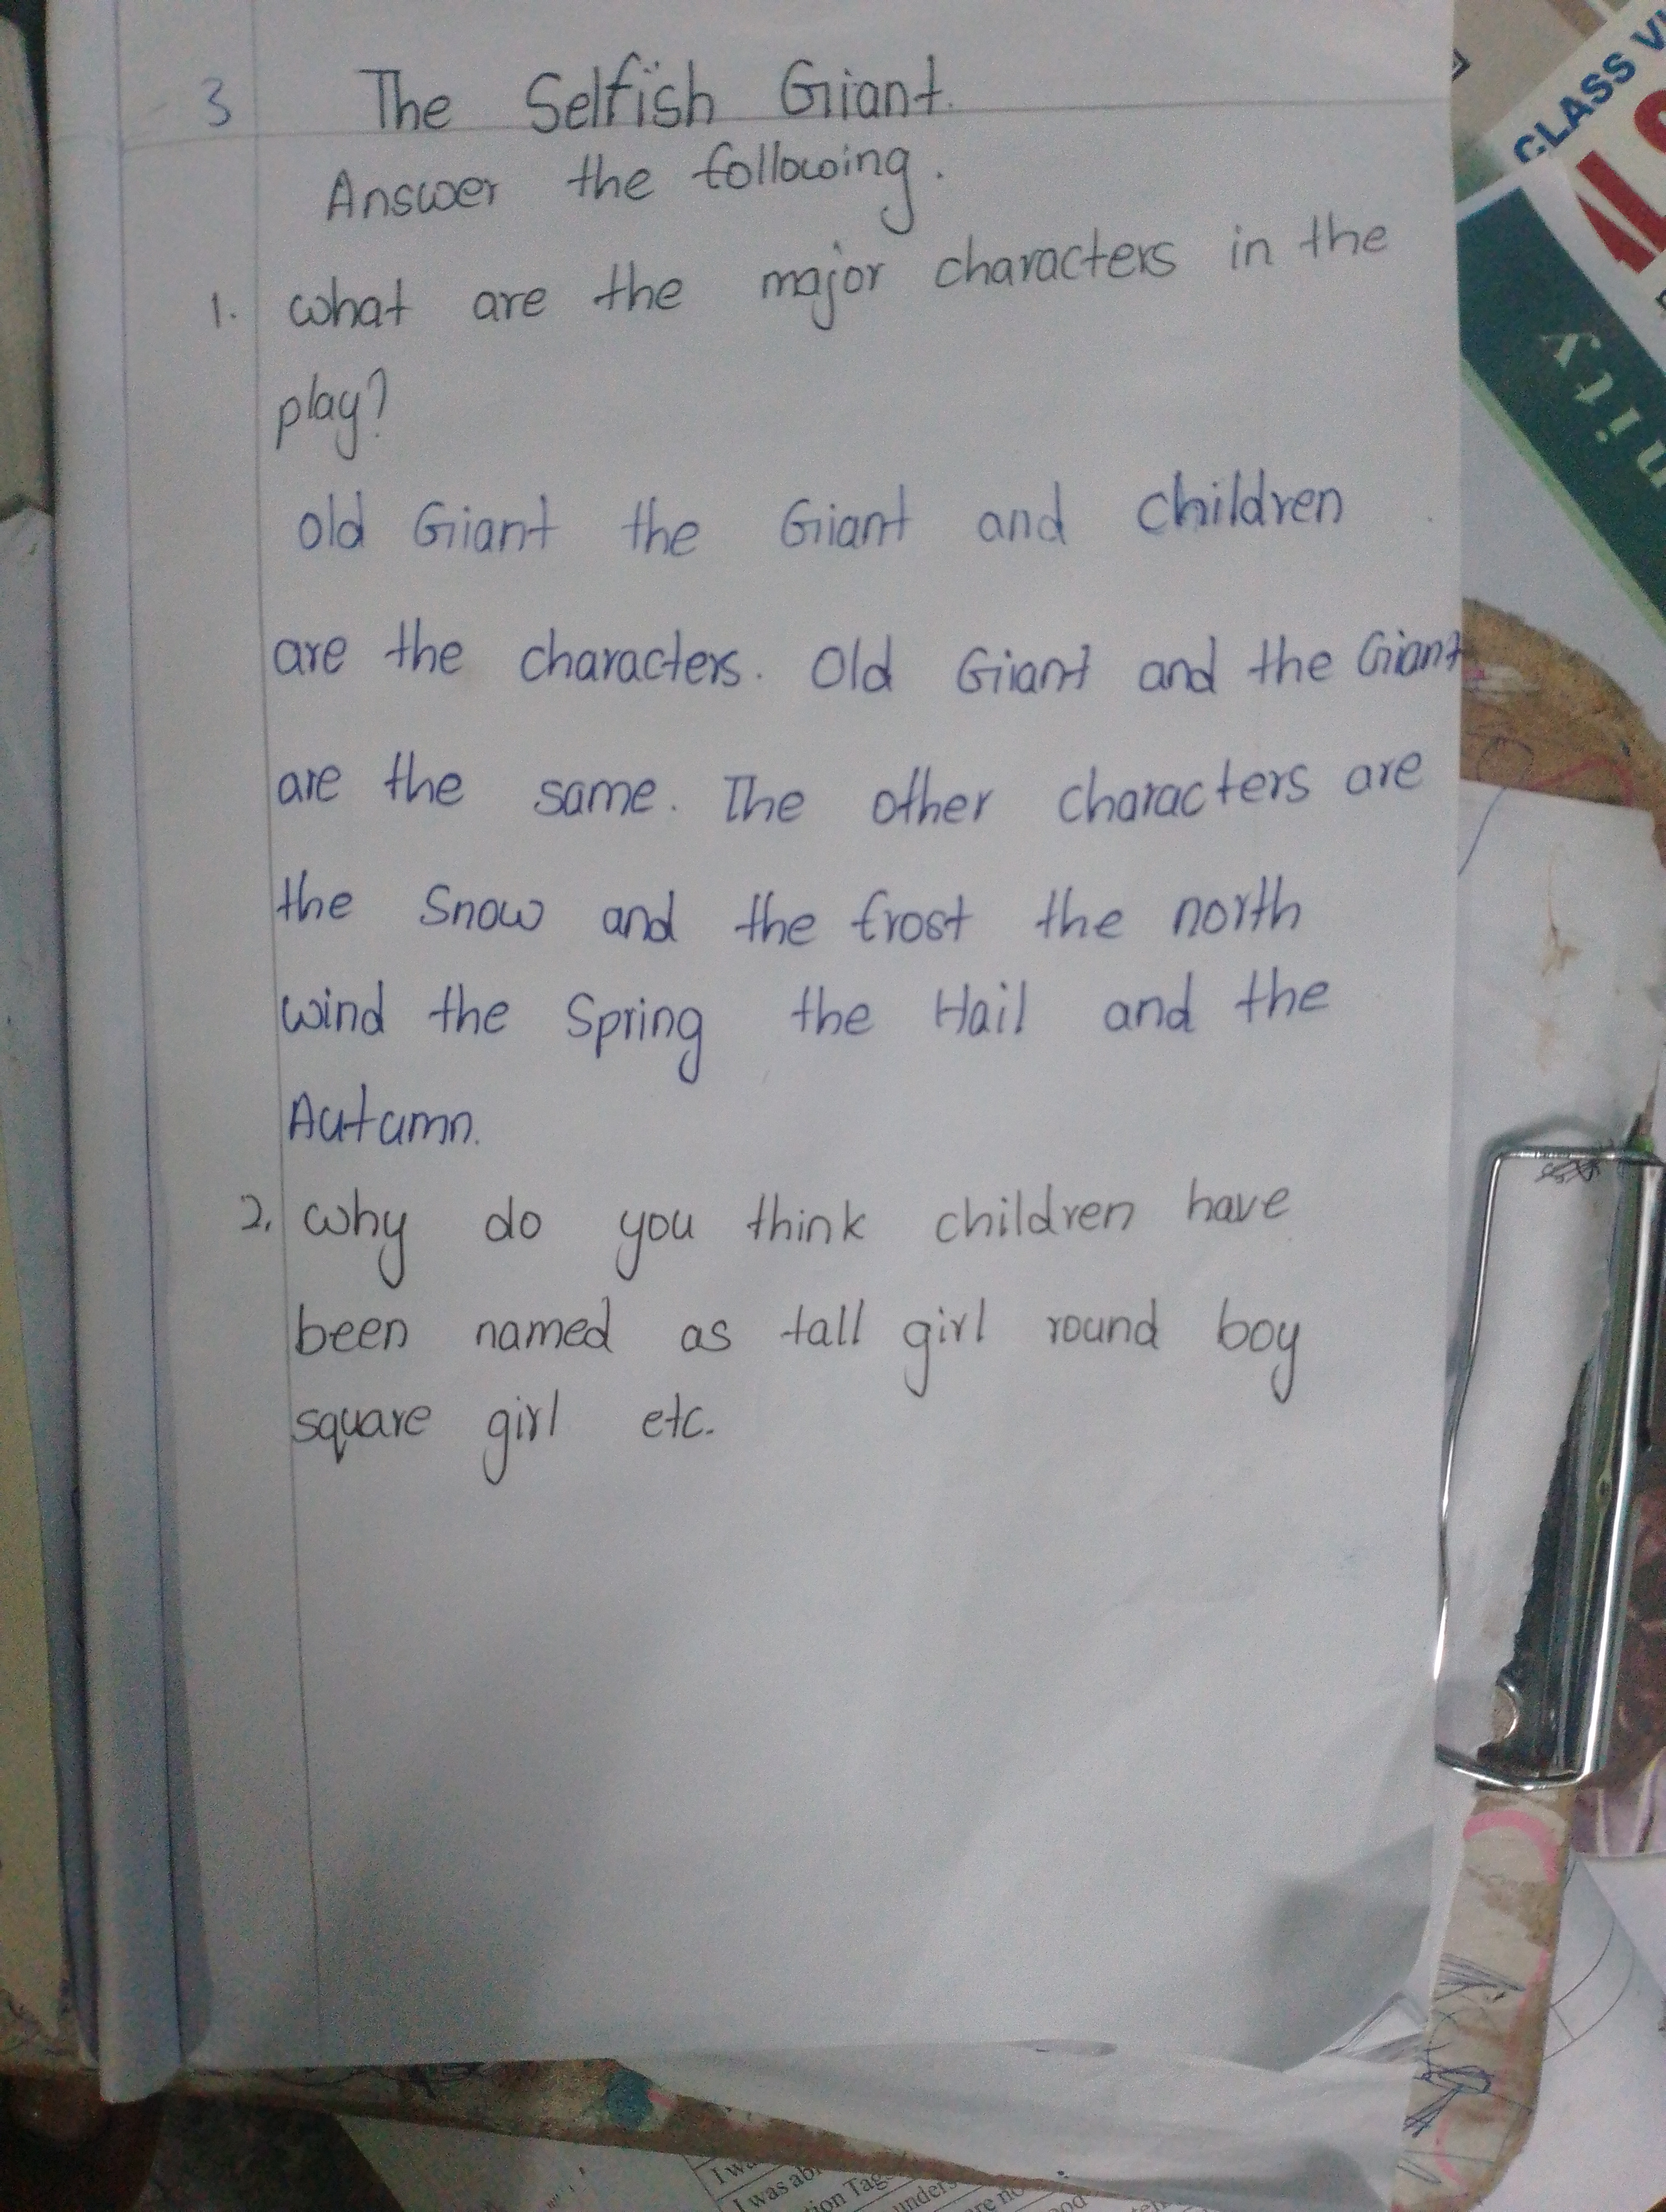 3 The Selfish Giant.
Answer the following.
1. What are the major characters in the
play?
Old Giant the Giant and children
are the characters. Old Giant and the Giant
are the same. The other characters are
the Snow and the frost the north
wind the Spring the Hail and the
Autumn.
2. Why do you think children have
been named as tall girl round boy
square girl etc.
CLASS
nity
I was
tion Tag